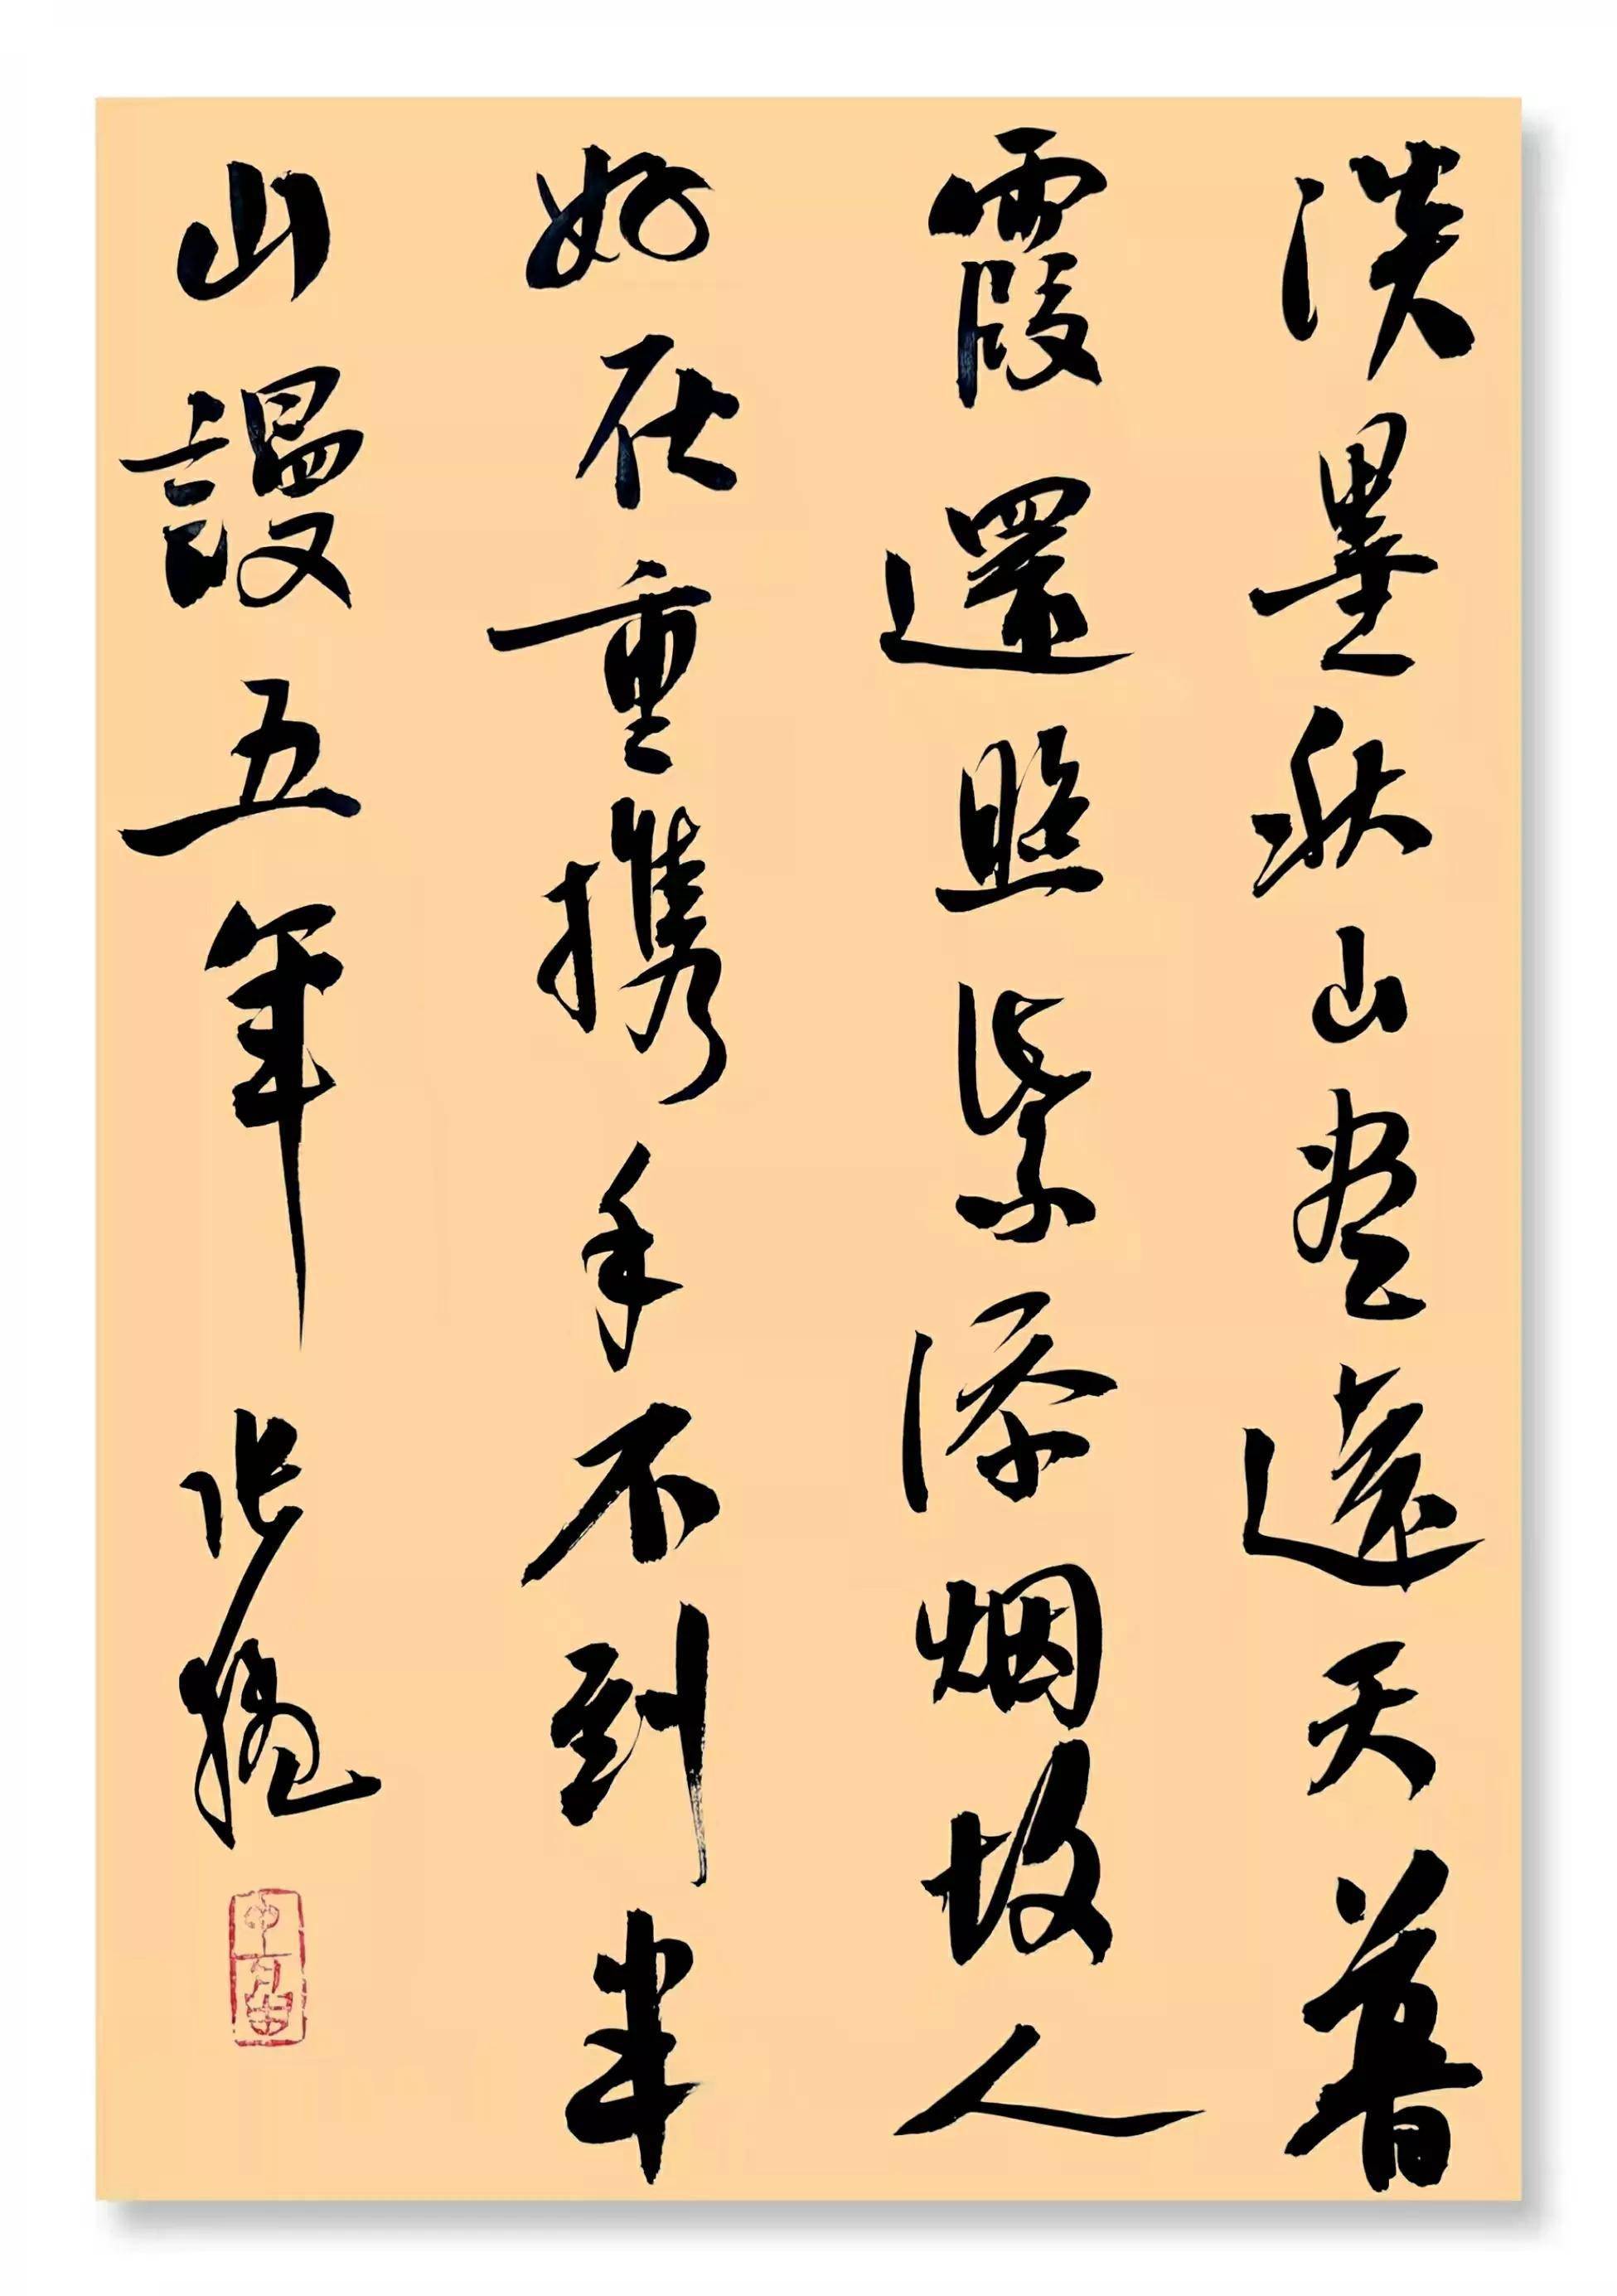 淡墨秋山畫遠天暮
霞還照紫添烟故人
好在重携手不到平
山謾五年 张